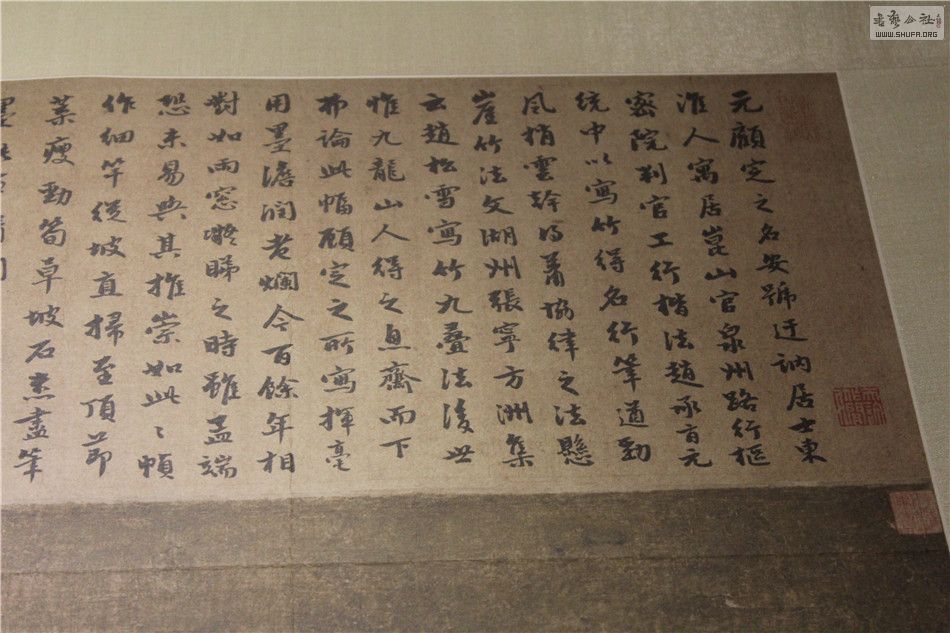 元顧定之名安號迂訥居士東
淮人寓居崑山官泉州路行樞
密院判官工行楷法趙承旨元
統中以寫竹得名行筆遒勁
風梢雲幹得蕭協律之法懸
崖竹法文湖州張寧方洲集
云趙松雪寫竹九疊法後世
惟九龍山人得之息齋而下
弗論此幅顧定之所寫揮毫
用墨澹潤老爛今百餘年相
對如雨窓凝睇之時雖孟端
恐未易與其推崇如此此幀
作細竿從坡直掃至頂節
葉瘦勁筍草坡石悉盡筆
墨
WWW.SHUFA.ORG